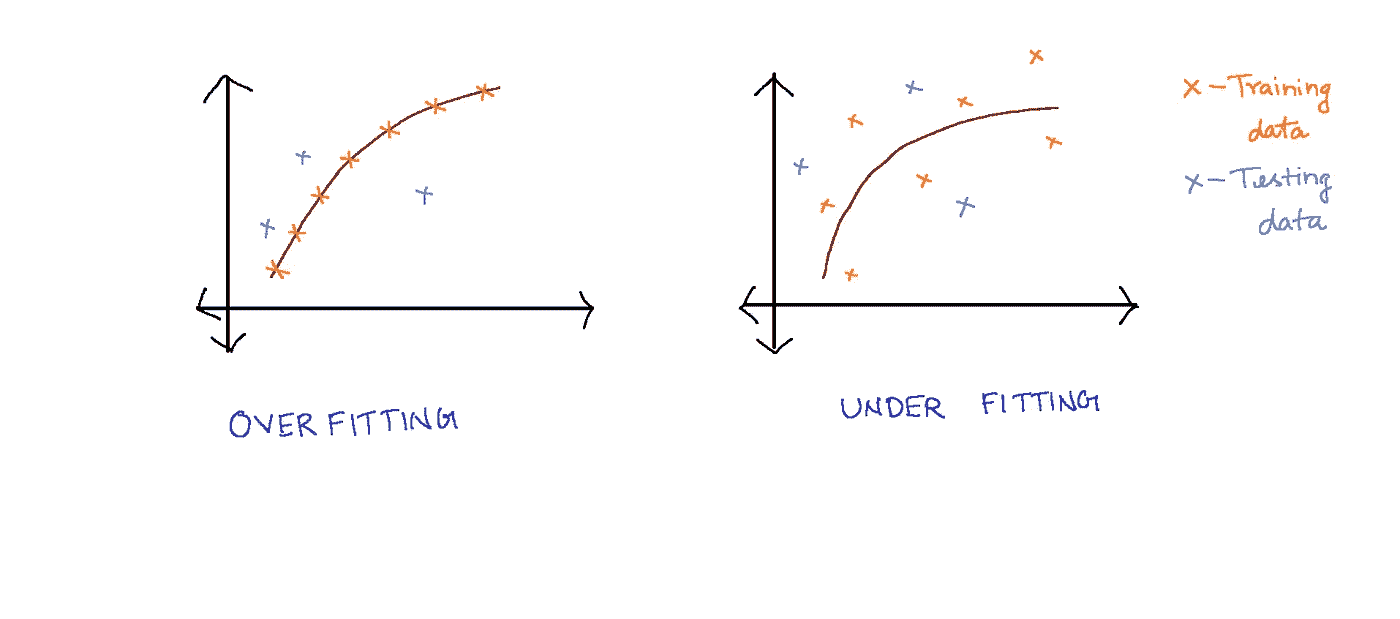 x - Training
data
x - Testing
data
OVER FITTING
UNDER FITTING